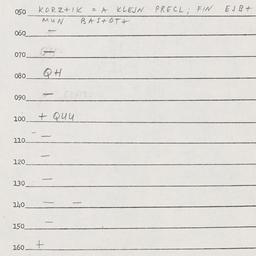 050 KORZTIK = A KLEJN PRECL; FIN EJB+
MUN BASTOT+
060 —
070 —
080 QH
090
100 + QUU
110 —
120 —
130 —
140 — —
150 —
160 +